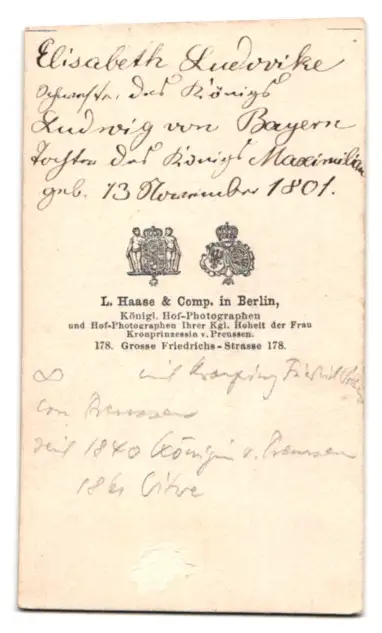 Elisabeth Ludovike
Schwester des Königs
Ludwig von Bayern
Tochter des Königs Maximilian
geb. 13 November 1801.
L. Haase & Comp. in Berlin,
Königl. Hof-Photographen
und Hof-Photographen Ihrer Kgl. Hoheit der Frau
Kronprinzessin v. Preussen.
178. Grosse Friedrichs-Strasse 178.
∞ mit Kronprinz Friedrich
von Preussen
seit 1840 Königin v. Preussen
1861 Witwe